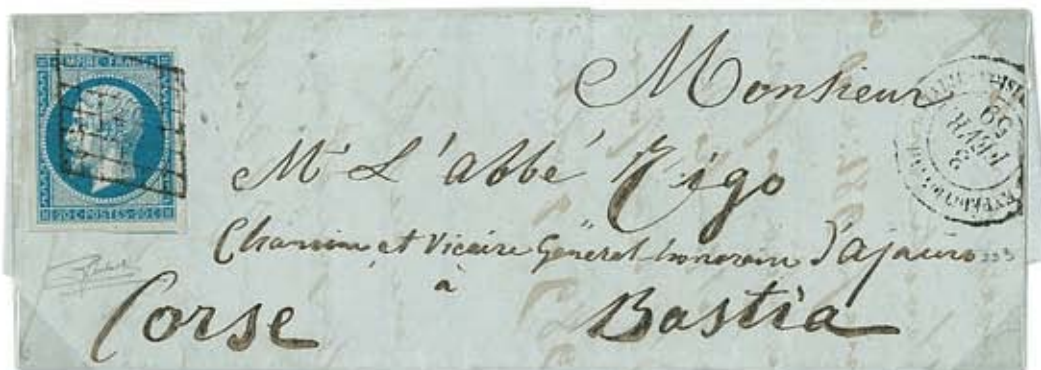 EMPIRE FRANC
20 C · POSTES · 20 C
Monsieur
Mr L'abbé Rigo
Chanoine et Vicaire Général honoraire d'ajaccio
à
Corse Bastia
3
FEVR
59